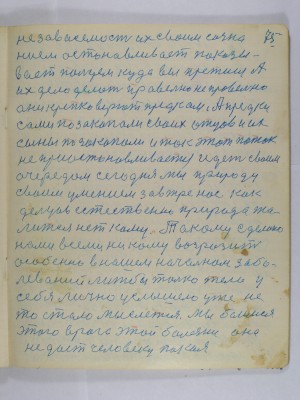 75
независемость их своим созна
нием останавливает показы-
вает почем куда вы прежние А
их дело делят правельно не провельно
они крепко верют предкам. А предки
сами позакопали своих отцов и их
сыны позакопали и так этот поток
не приостонавливается идет своим
очередом сегодня мы природу
своим умением завтра нас как
делцов естественно природа жа-
литься нет кому. Такому сделано
нами всеми ни кому возразит
особенно в нашем началном забо-
левании лижбы толко тело у-
себя лично услышело уже не
то стало мыслется. Мы боимся
этого врага этой болезни она
не дает человеку покоя